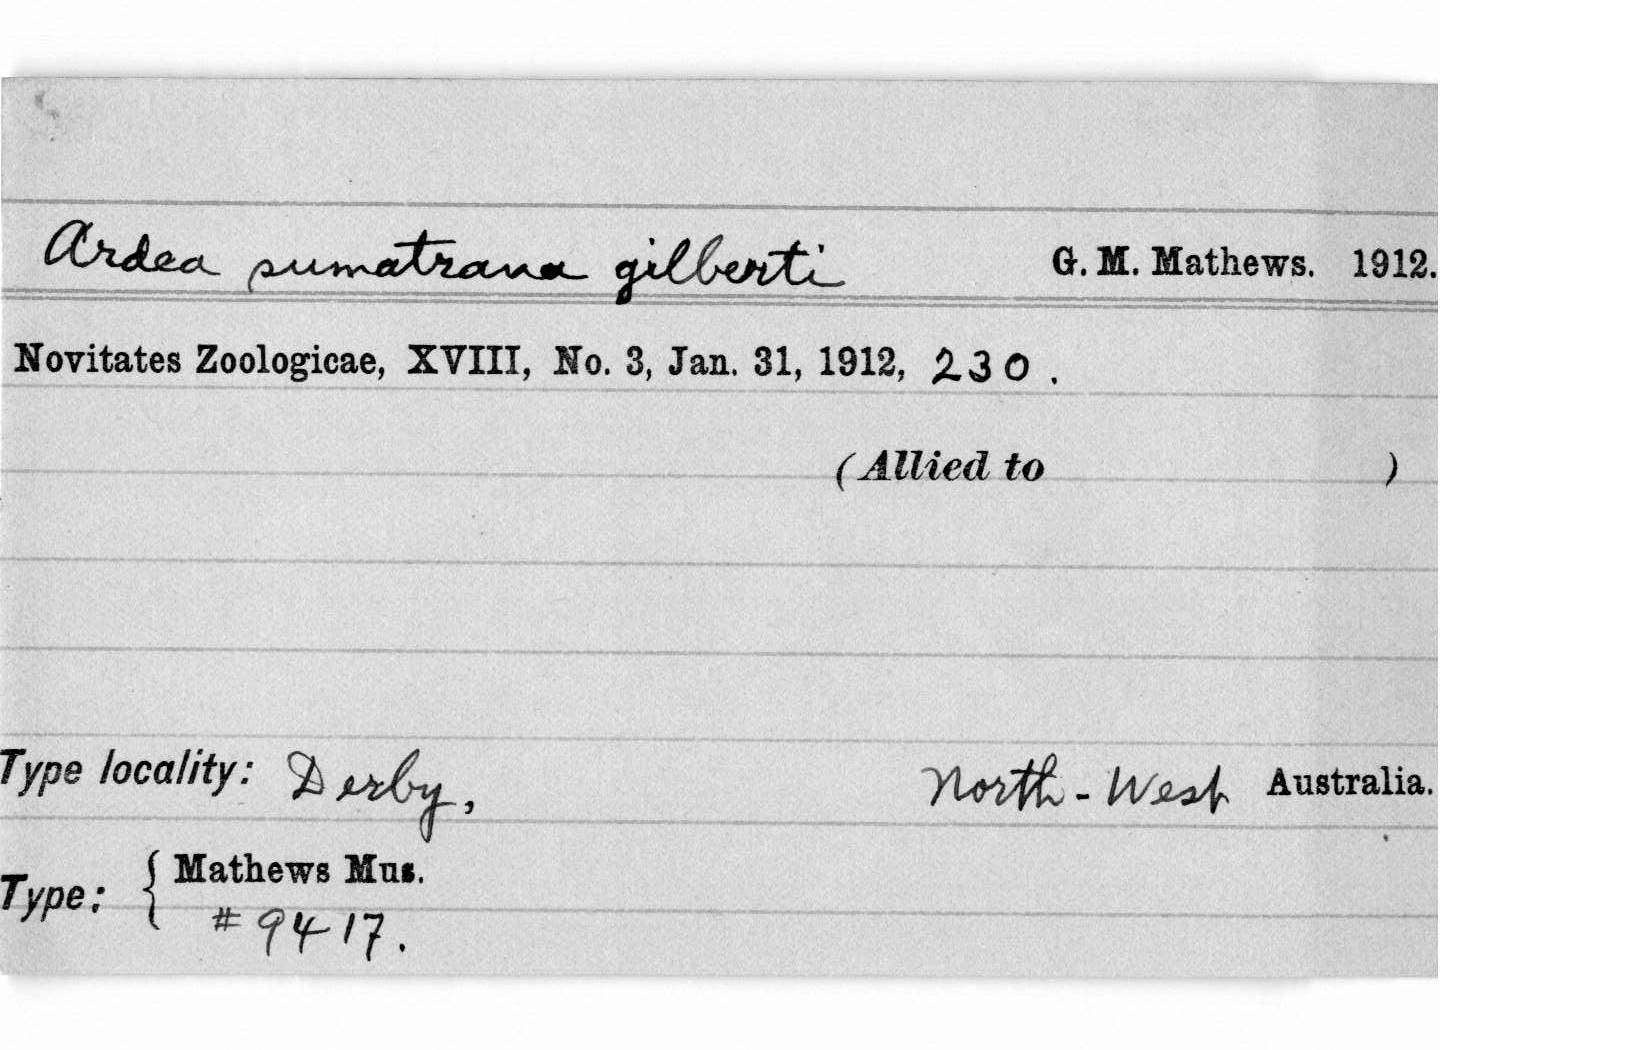 Ardea sumatrana gilberti G. M. Mathews. 1912.
Novitates Zoologicae, XVIII, No. 3, Jan. 31, 1912, 230.
(Allied to )
Type locality: Derby, North-West Australia.
Type: { Mathews Mus.
#9417.